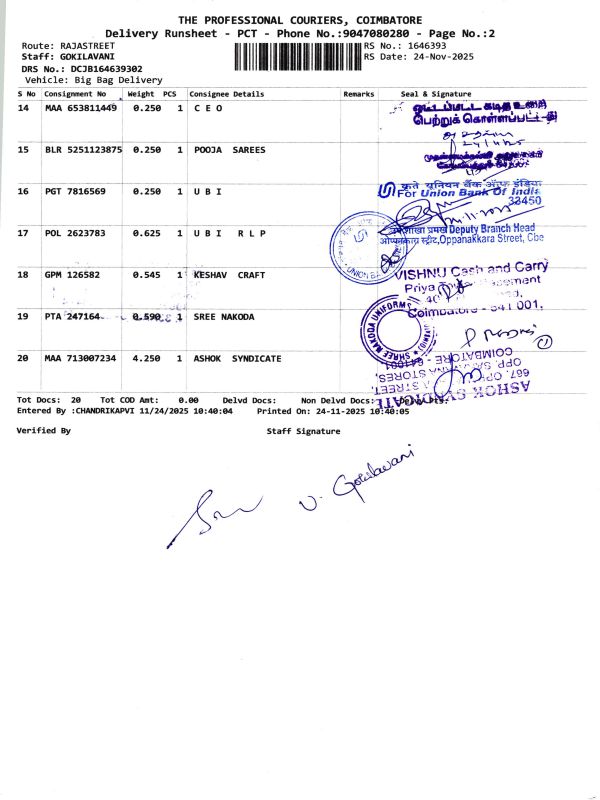 THE PROFESSIONAL COURIERS, COIMBATORE
Delivery Runsheet - PCT - Phone No.:9047080280 - Page No.:2
Route: RAJASTREET
RS No.: 1646393
Staff: GOKILAVANI
RS Date: 24-Nov-2025
DRS No.: DCJB164639302
Vehicle: Big Bag Delivery
S No Consignment No Weight PCS Consignee Details Remarks Seal & Signature
14 MAA 653811449 0.250 1 C E O
பெற்றுக் கொள்ளப்பட்டது
15 BLR 5251123875 0.250 1 POOJA SAREES
16 PGT 7816569 0.250 1 U B I
कृते यूनियन बैंक ऑफ इंडिया
For Union Bank Of India
33450
17 POL 2623783 0.625 1 U B I R L P
शाखा प्रमुख Deputy Branch Head
ओप्पनकारा स्ट्रीट,Oppanakkara Street, Cbe
UNION BA
18 GPM 126582 0.545 1 KESHAV CRAFT
VISHNU Cash and Carry
Priya
Coimbatore - 641 001.
19 PTA 247164 0.590 1 SREE NAKODA
SHREE NAKODA UNIFORMS
20 MAA 713007234 4.250 1 ASHOK SYNDICATE
ASHOK SYNDICATE
667, OPP.
STREET,
STORES,
COIMBATORE - 641001
Tot Docs: 20 Tot COD Amt: 0.00 Delvd Docs: Non Delvd Docs:
Entered By :CHANDRIKAPVI 11/24/2025 10:40:04 Printed On: 24-11-2025 10:40:05
Verified By Staff Signature
V. Gokilavani